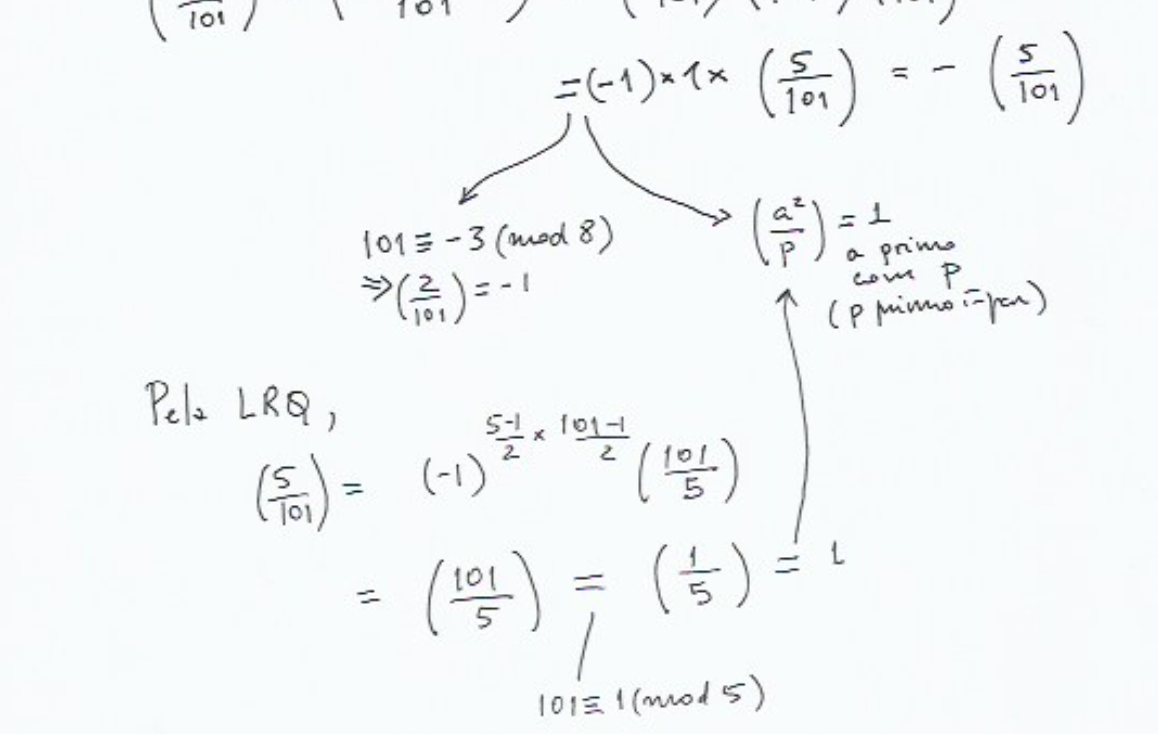 (—/101) ( 101 ) ( 101) ( ) ( 101)
= (-1) × 1 × (5/101) = - (5/101)
101 ≡ -3 (mod 8)
⇒ (2/101) = -1
(a²/p) = 1
a primo
com p
(p primo ímpar)
Pela LRQ,
(5/101) = (-1)^(5-1/2 × 101-1/2) (101/5)
= (101/5) = (1/5) = 1
101 ≡ 1 (mod 5)